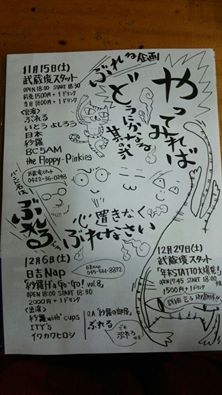 ぶれる企画
やってみれば
どうにかなる
其の弐
11月15日(土)
武蔵境スタット
OPEN 18:00 START 18:30
前売 1500円+1ドリンク
当日 1800円+1ドリンク
<出演>
ぶれる
いとうよしろう
日本
BC5AM
the Hoppy-Pinkies
武蔵境スタット
0422-36-0298
バンド名は
ぶれる
心置きなく
ぶれなさい
12月6日(土)
日吉Nap
紗羅Ha go-go! vol.8
OPEN 18:00 START 18:30
2000円+1ドリンク
<出演>
紗羅with cups
ITT's
イワカワヒロシ
O.A 紗羅の部屋
ぶれる
日吉Nap
045-566-8872
12月27日(土)
武蔵境スタット
OPEN 17:45 START 18:00
1500円+1ドリンク